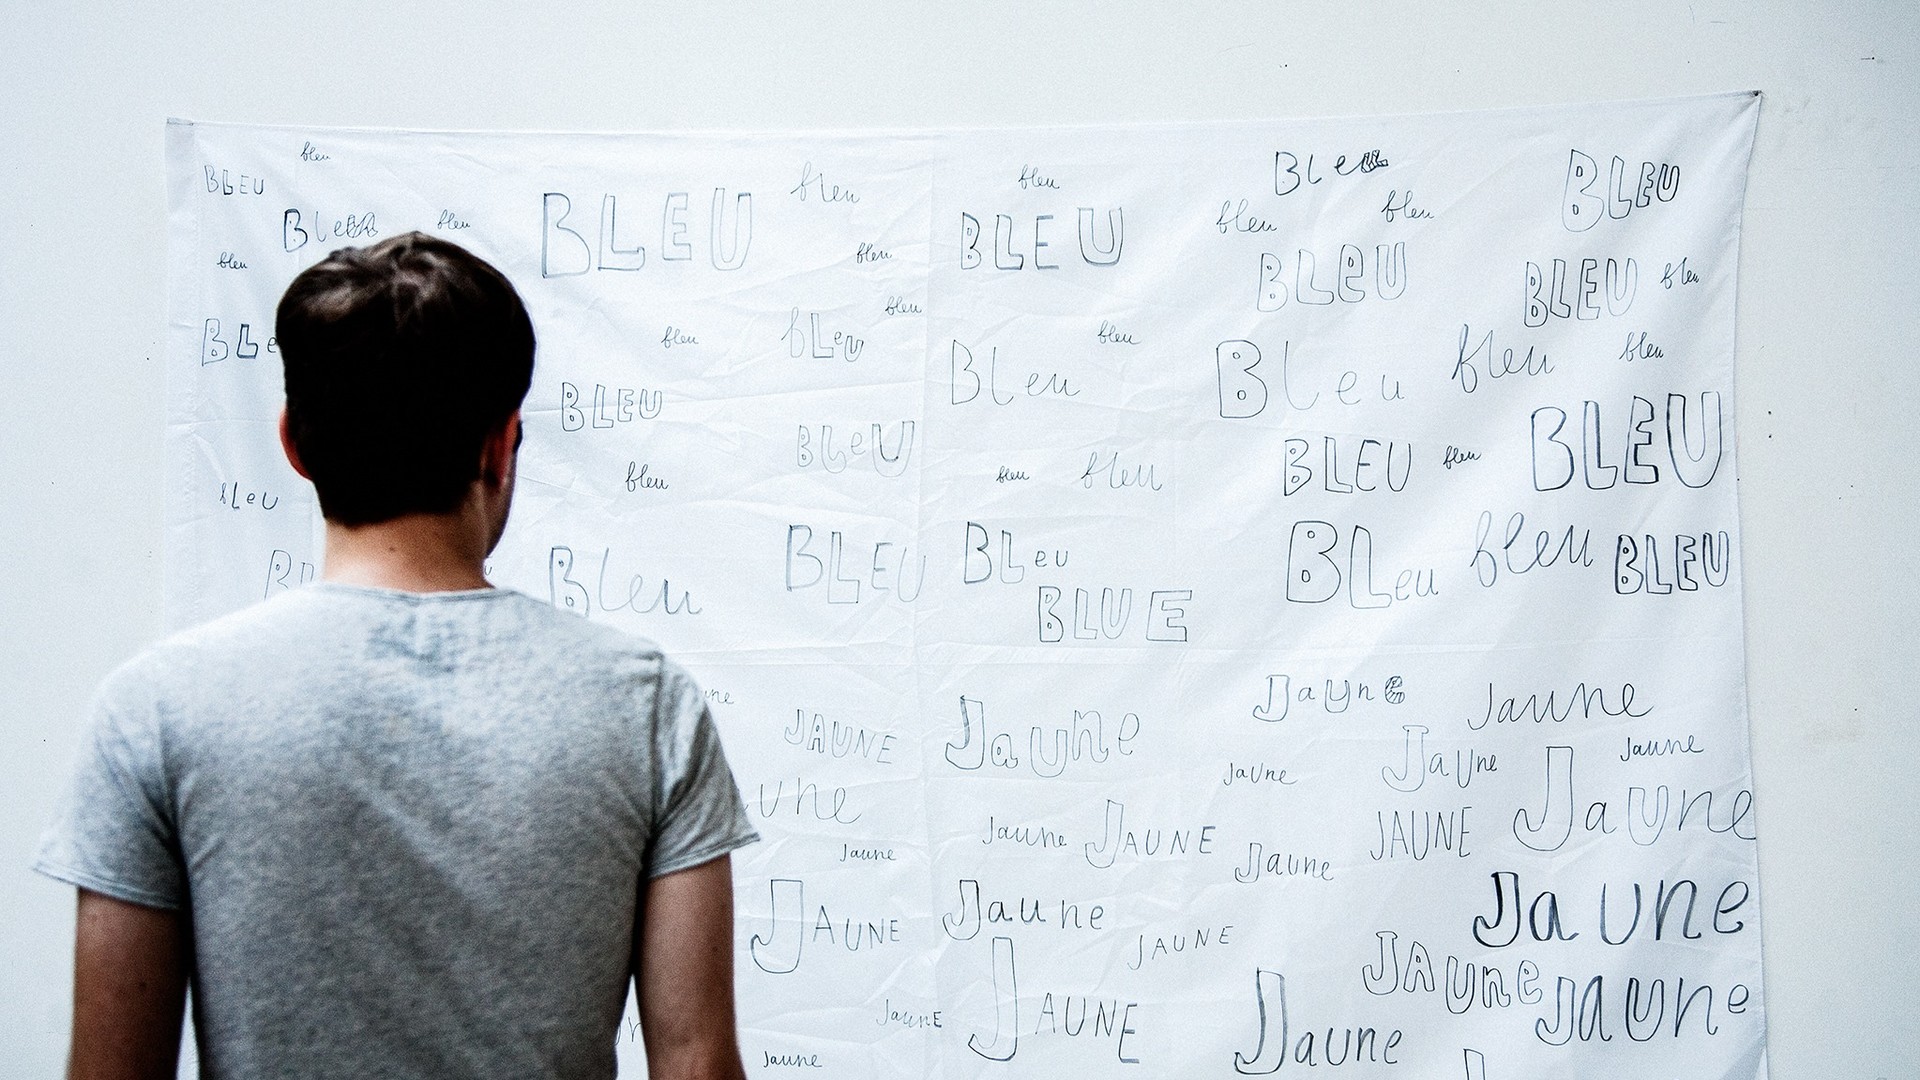 bleu
BLEU
bleu
bleu
BLEU
bleu
bleu
bleu
BLEU
Bleu
bleu
bleu
BLEU
BLeU
bleu
bleu
BLEU
bleu
bleu
bLeu
Bleu
bleu
Bleu
bleu
bleu
BLEU
BLeU
BLEU
bleu
BLEU
bleu
bleu
bleu
bLeu
BLEU
BLeu
BLeu
bleu
BLEU
Bleu
BLUE
Jaune
Jaune
JAUNE
Jaune
Jaune
Jaune
Jaune
Jaune
Jaune
JAUNE
JAUNE
Jaune
Jaune
JAUNE
Jaune
Jaune
JAUNE
JAUne
Jaune
JaunE
JAUNE
Jaune
Jaune